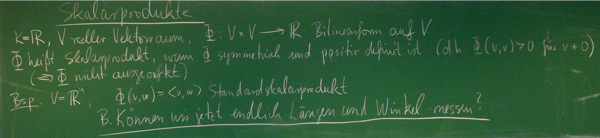 Skalarprodukte
K=ℝ, V reeller Vektorraum, Φ: V×V → ℝ Bilinearform auf V
Φ heißt Skalarprodukt, wenn Φ symmetrisch und positiv definit ist (dh Φ(v,v)>0 für v≠0)
(⇒ Φ nicht ausgeartet)
Bsp: V=ℝⁿ, Φ(v,w)=<v,w> Standardskalarprodukt
B. Können wir jetzt endlich Längen und Winkel messen?